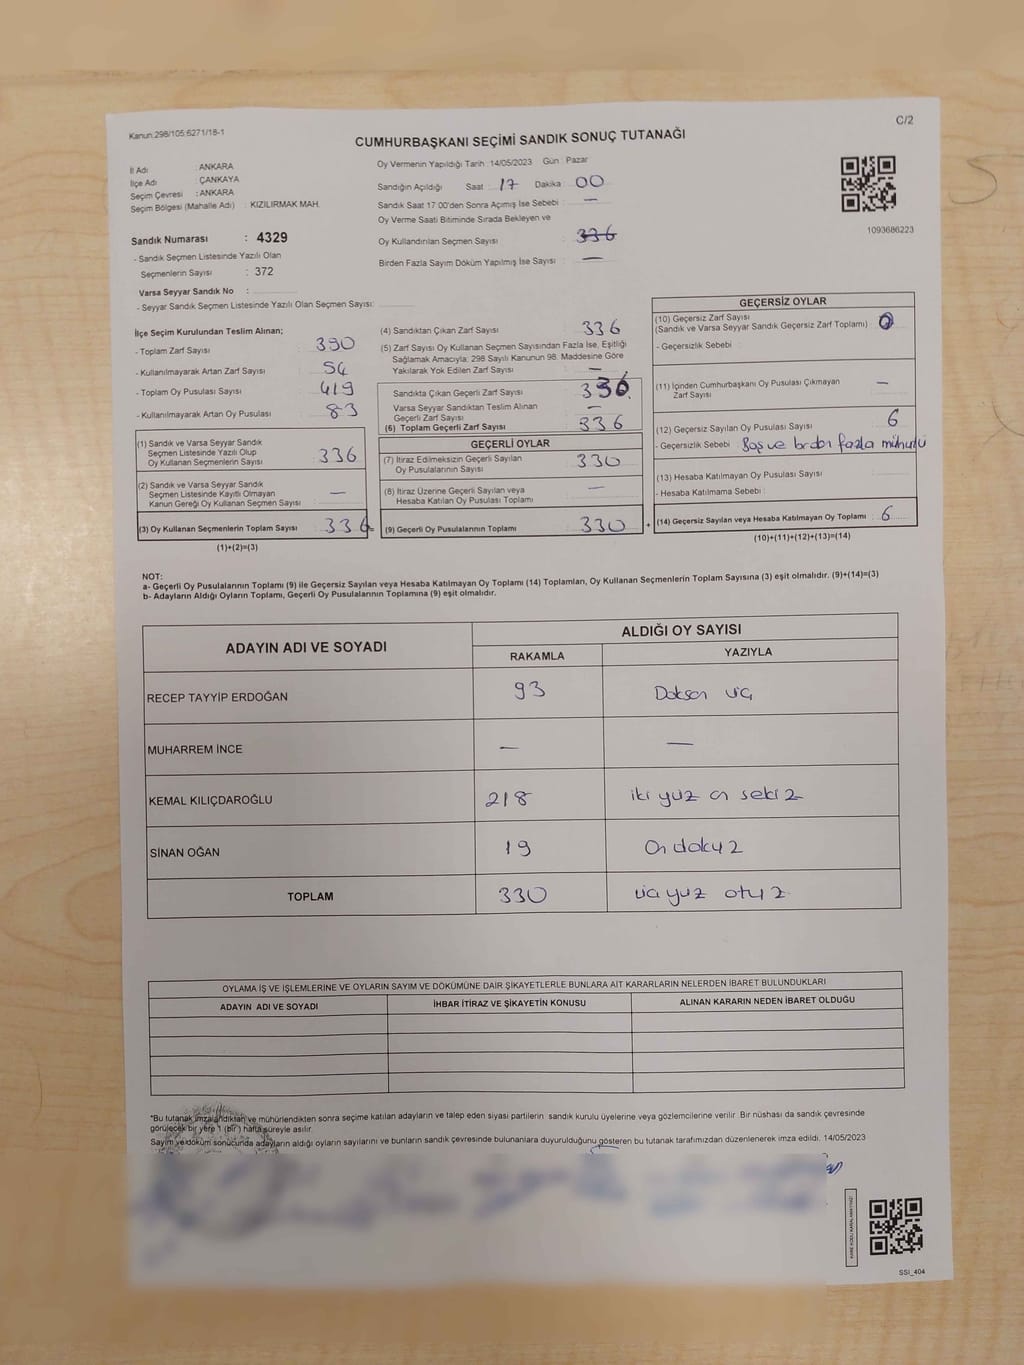 Kanun:298/105;6271/18-1
C/2
CUMHURBAŞKANI SEÇİMİ SANDIK SONUÇ TUTANAĞI
İl Adı : ANKARA
İlçe Adı : ÇANKAYA
Seçim Çevresi : ANKARA
Seçim Bölgesi (Mahalle Adı) : KIZILIRMAK MAH.
Sandık Numarası : 4329
- Sandık Seçmen Listesinde Yazılı Olan
Seçmenlerin Sayısı : 372
Varsa Seyyar Sandık No :
- Seyyar Sandık Seçmen Listesinde Yazılı Olan Seçmen Sayısı:
Oy Vermenin Yapıldığı Tarih : 14/05/2023 Gün : Pazar
Sandığın Açıldığı Saat : 17 Dakika : 00
Sandık Saat 17:00'den Sonra Açımış İse Sebebi : —
Oy Verme Saati Bitiminde Sırada Bekleyen ve
Oy Kullandırılan Seçmen Sayısı : 336
Birden Fazla Sayım Döküm Yapılmış İse Sayısı : —
1093686223
İlçe Seçim Kurulundan Teslim Alınan;
- Toplam Zarf Sayısı : 390
- Kullanılmayarak Artan Zarf Sayısı : 54
- Toplam Oy Pusulası Sayısı : 419
- Kullanılmayarak Artan Oy Pusulası : 83
(1) Sandık ve Varsa Seyyar Sandık
Seçmen Listesinde Yazılı Olup
Oy Kullanan Seçmenlerin Sayısı : 336
(2) Sandık ve Varsa Seyyar Sandık
Seçmen Listesinde Kayıtlı Olmayan
Kanun Gereği Oy Kullanan Seçmen Sayısı : —
(3) Oy Kullanan Seçmenlerin Toplam Sayısı : 336 =
(1)+(2)=(3)
(4) Sandıktan Çıkan Zarf Sayısı : 336
(5) Zarf Sayısı Oy Kullanan Seçmen Sayısından Fazla İse, Eşitliği
Sağlamak Amacıyla; 298 Sayılı Kanunun 98. Maddesine Göre
Yakılarak Yok Edilen Zarf Sayısı : —
Sandıkta Çıkan Geçerli Zarf Sayısı : 336
Varsa Seyyar Sandıktan Teslim Alınan
Geçerli Zarf Sayısı : —
(6) Toplam Geçerli Zarf Sayısı : 336
GEÇERLİ OYLAR
(7) İtiraz Edilmeksizin Geçerli Sayılan
Oy Pusulalarının Sayısı : 330
(8) İtiraz Üzerine Geçerli Sayılan veya
Hesaba Katılan Oy Pusulası Toplamı : —
(9) Geçerli Oy Pusulalarının Toplamı : 330 +
GEÇERSİZ OYLAR
(10) Geçersiz Zarf Sayısı
(Sandık ve Varsa Seyyar Sandık Geçersiz Zarf Toplamı) : 0
- Geçersizlik Sebebi :
(11) İçinden Cumhurbaşkanı Oy Pusulası Çıkmayan
Zarf Sayısı : —
(12) Geçersiz Sayılan Oy Pusulası Sayısı : 6
- Geçersizlik Sebebi : Boş ve birden fazla mühürlü
(13) Hesaba Katılmayan Oy Pusulası Sayısı :
- Hesaba Katılmama Sebebi :
(14) Geçersiz Sayılan veya Hesaba Katılmayan Oy Toplamı : 6
(10)+(11)+(12)+(13)=(14)
NOT:
a- Geçerli Oy Pusulalarının Toplamı (9) ile Geçersiz Sayılan veya Hesaba Katılmayan Oy Toplamı (14) Toplamları, Oy Kullanan Seçmenlerin Toplam Sayısına (3) eşit olmalıdır. (9)+(14)=(3)
b- Adayların Aldığı Oyların Toplamı, Geçerli Oy Pusulalarının Toplamına (9) eşit olmalıdır.
ADAYIN ADI VE SOYADI
ALDIĞI OY SAYISI
RAKAMLA YAZIYLA
RECEP TAYYİP ERDOĞAN 93 Doksan üç
MUHARREM İNCE — —
KEMAL KILIÇDAROĞLU 218 iki yüz on sekiz
SİNAN OĞAN 19 On dokuz
TOPLAM 330 üç yüz otuz
OYLAMA İŞ VE İŞLEMLERİNE VE OYLARIN SAYIM VE DÖKÜMÜNE DAİR ŞİKAYETLERLE BUNLARA AİT KARARLARIN NELERDEN İBARET BULUNDUKLARI
ADAYIN ADI VE SOYADI İHBAR İTİRAZ VE ŞİKAYETİN KONUSU ALINAN KARARIN NEDEN İBARET OLDUĞU
*Bu tutanak imzalandıktan ve mühürlendikten sonra seçime katılan adayların ve talep eden siyasi partilerin sandık kurulu üyelerine veya gözlemcilerine verilir. Bir nüshası da sandık çevresinde
görülecek bir yere 1 (bir) hafta süreyle asılır.
Sayım ve döküm sonucunda adayların aldığı oyların sayılarını ve bunların sandık çevresinde bulunanlara duyurulduğunu gösteren bu tutanak tarafımızdan düzenlenerek imza edildi. 14/05/2023
KARE KODU KARALAMAYINIZ!
SSI_404